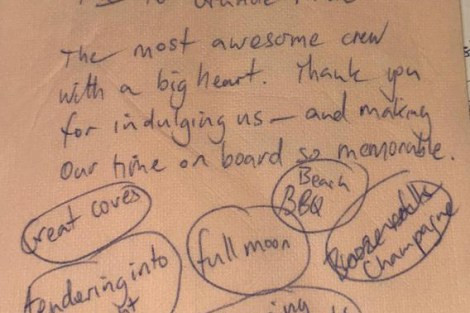 The most awesome crew
with a big heart. Thank you
for indulging us – and making
our time on board so memorable.
Beach
BBQ
Great coves
full moon
champagne
tendering into